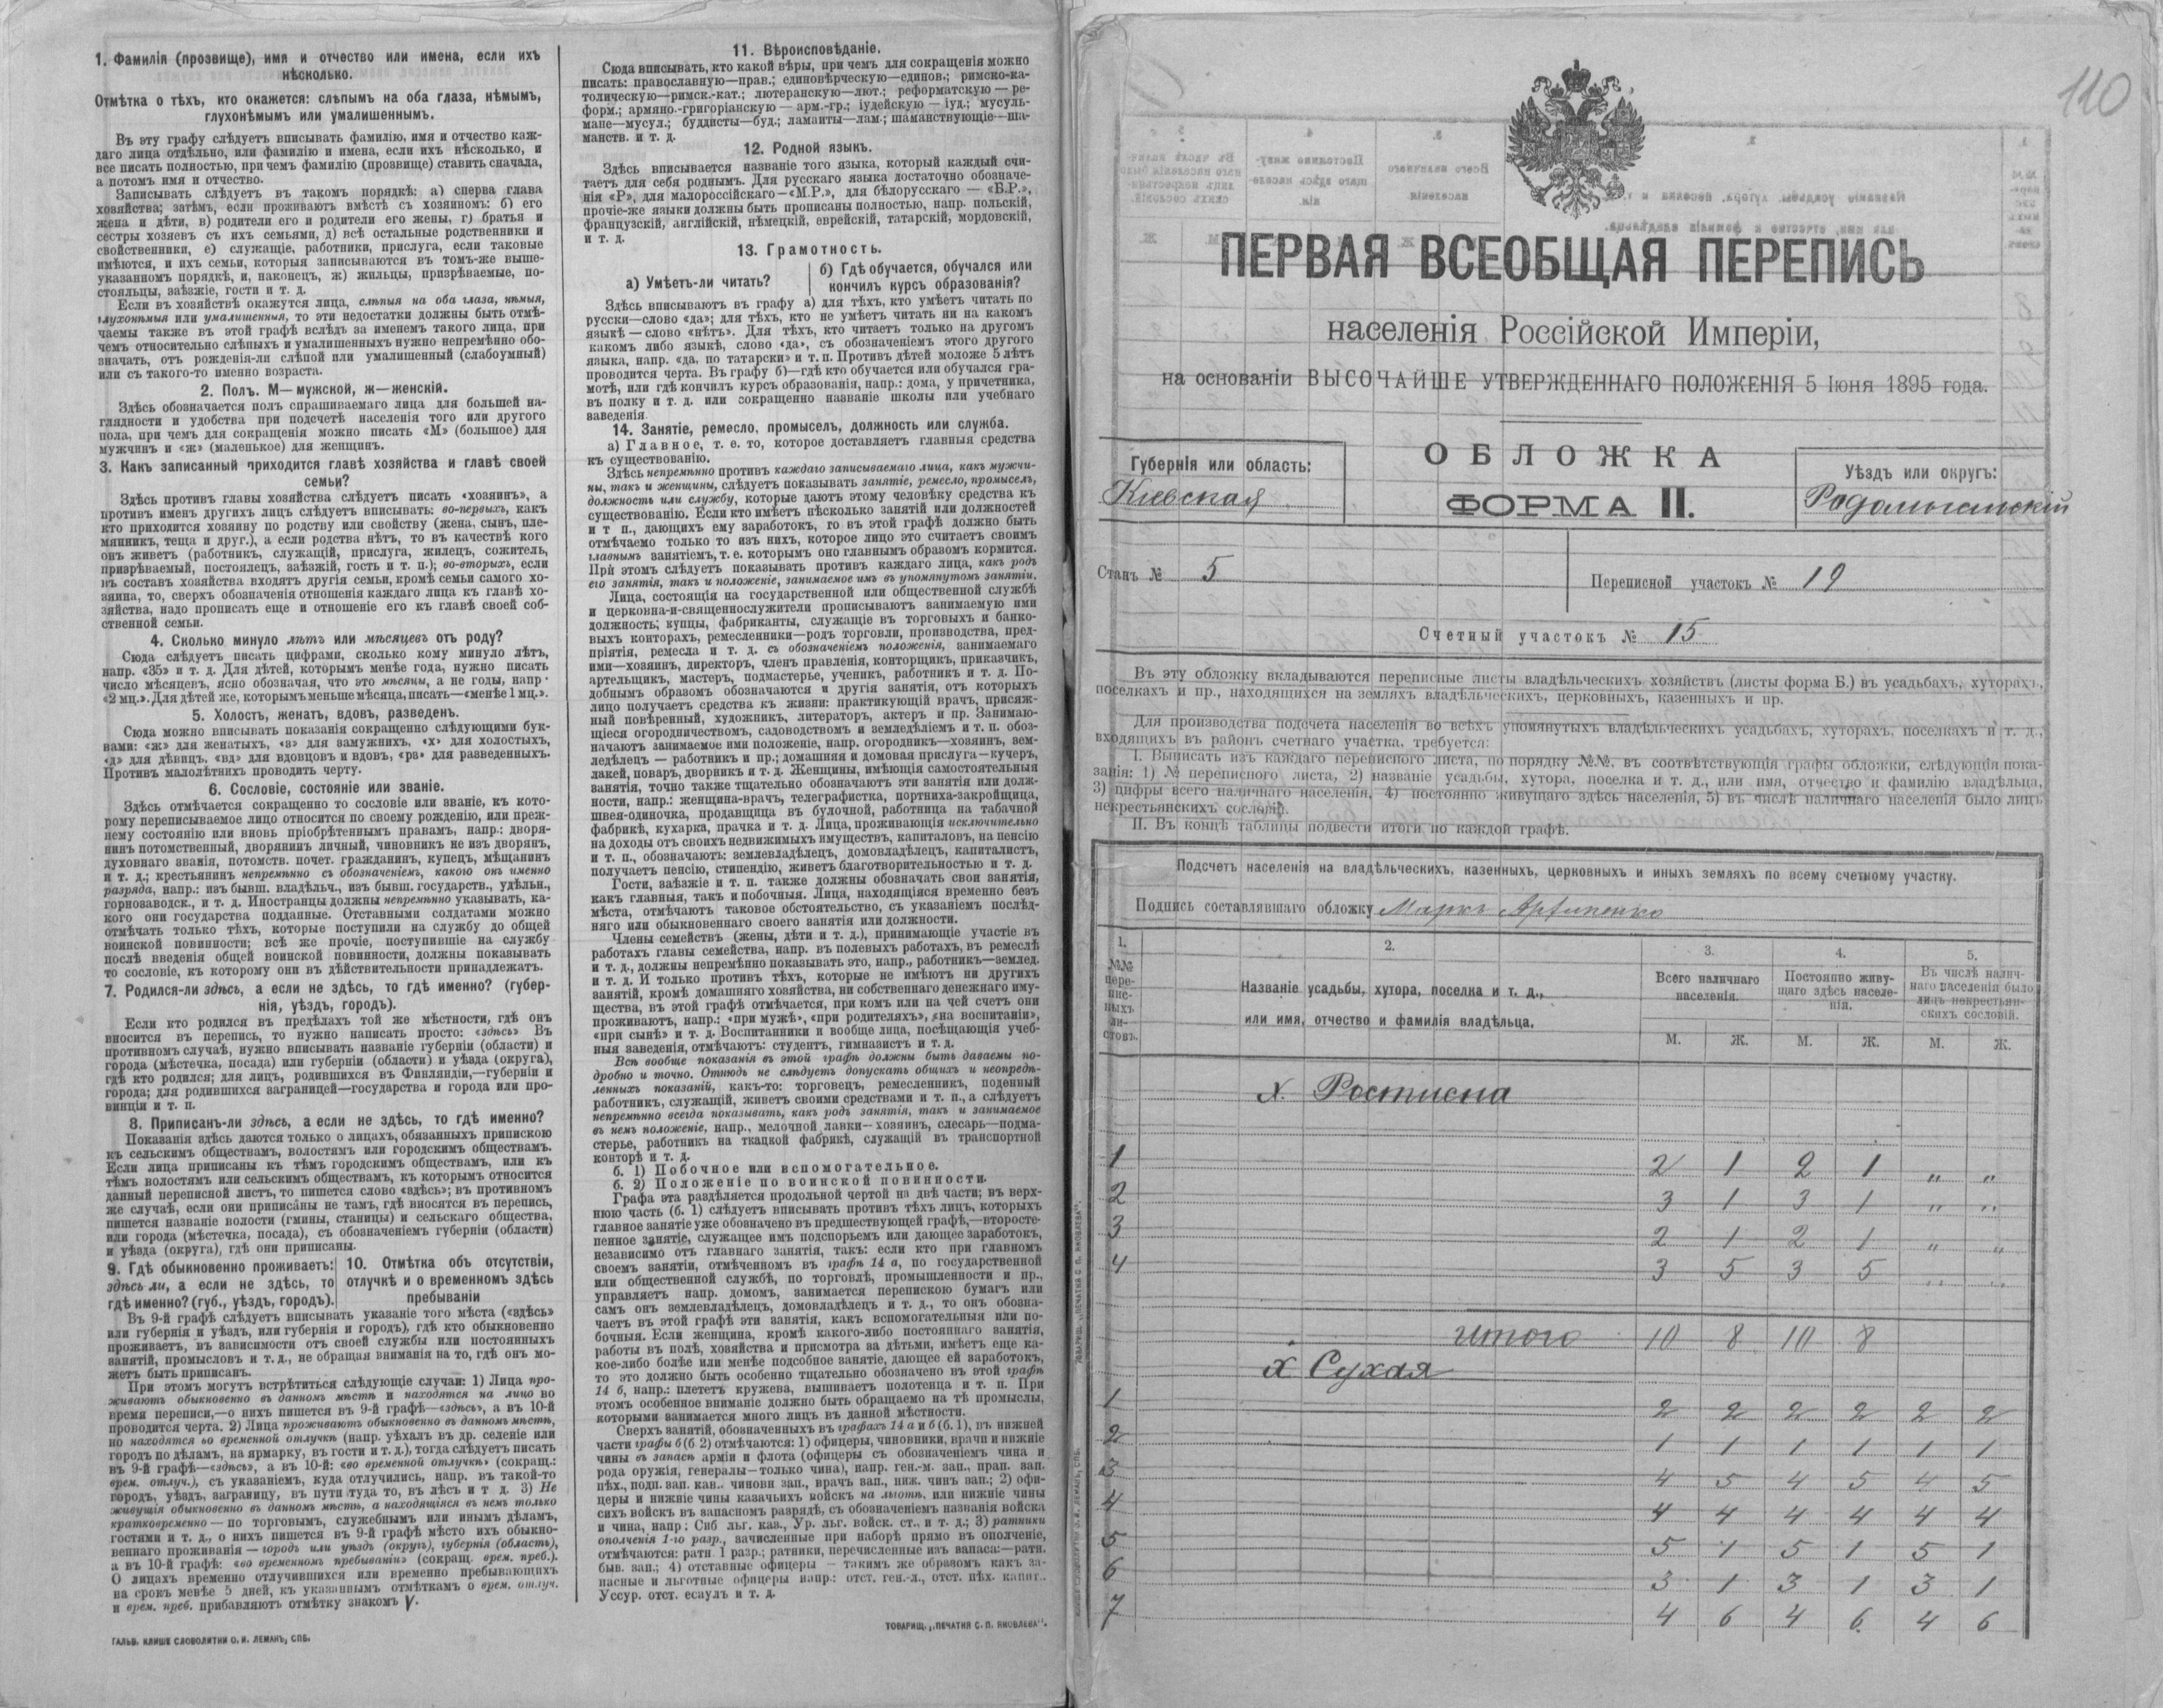 1. Фамилія (прозвище), имя и отчество или имена, если ихъ
нѣсколько.
Отмѣтка о тѣхъ, кто окажется: слѣпымъ на оба глаза, нѣмымъ,
глухонѣмымъ или умалишеннымъ.
Въ эту графу слѣдуетъ вписывать фамилію, имя и отчество каж-
даго лица отдѣльно, или фамилію и имена, если ихъ нѣсколько, и
все писать полностью, при чемъ фамилію (прозвище) ставить сначала,
а потомъ имя и отчество.
Записывать слѣдуетъ въ такомъ порядкѣ: а) сперва глава
хозяйства; затѣмъ, если проживаютъ вмѣстѣ съ хозяиномъ: б) его
жена и дѣти, в) родители его и родители его жены, г) братья и
сестры хозяевъ съ ихъ семьями, д) всѣ остальные родственники и
свойственники, е) служащіе, работники, прислуга, если таковые
имѣются, и ихъ семьи, которыя записываются въ томъ-же выше-
указанномъ порядкѣ, и, наконецъ, ж) жильцы, призрѣваемые, по-
стояльцы, заѣзжіе, гости и т. д.
Если въ хозяйствѣ окажутся лица, слѣпыя на оба глаза, нѣмыя,
глухонѣмыя или умалишенныя, то эти недостатки должны быть отмѣ-
чаемы также въ этой графѣ вслѣдъ за именемъ такого лица, при
чемъ относительно слѣпыхъ и умалишенныхъ нужно непремѣнно обо-
значать, отъ рожденія-ли слѣпой или умалишенный (слабоумный)
или съ такого-то именно возраста.
2. Полъ. М—мужской, ж—женскій.
Здѣсь обозначается полъ спрашиваемаго лица для большей на-
глядности и удобства при подсчетѣ населенія того или другого
пола, при чемъ для сокращенія можно писать «М» (большое) для
мужчинъ и «ж» (маленькое) для женщинъ.
3. Какъ записанный приходится главѣ хозяйства и главѣ своей
семьи?
Здѣсь противъ главы хозяйства слѣдуетъ писать «хозяинъ», а
противъ именъ другихъ лицъ слѣдуетъ вписывать: во-первыхъ, какъ
кто приходится хозяину по родству или свойству (жена, сынъ, пле-
мянникъ, теща и друг.), а если родства нѣтъ, то въ качествѣ кого
онъ живетъ (работникъ, служащій, прислуга, жилецъ, сожитель,
призрѣваемый, постоялецъ, заѣзжій, гость и т. п.); во-вторыхъ, если
въ составъ хозяйства входятъ другія семьи, кромѣ семьи самого хо-
зяина, то, сверхъ обозначенія отношенія каждаго лица къ главѣ хо-
зяйства, надо прописать еще и отношеніе его къ главѣ своей соб-
ственной семьи.
4. Сколько минуло лѣтъ или мѣсяцевъ отъ роду?
Сюда слѣдуетъ писать цифрами, сколько кому минуло лѣтъ,
напр. «35» и т. д. Для дѣтей, которымъ менѣе года, нужно писать
число мѣсяцевъ, ясно обозначая, что это мѣсяцы, а не годы, напр.
«2 мц.». Для дѣтей же, которымъ меньше мѣсяца, писать—«менѣе 1 мц.».
5. Холостъ, женатъ, вдовъ, разведенъ.
Сюда можно вписывать показанія сокращенно слѣдующими бук-
вами: «ж» для женатыхъ, «з» для замужнихъ, «х» для холостыхъ,
«д» для дѣвицъ, «вд» для вдовцовъ и вдовъ, «рз» для разведенныхъ.
Противъ малолѣтнихъ проводить черту.
6. Сословіе, состояніе или званіе.
Здѣсь отмѣчается сокращенно то сословіе или званіе, къ кото-
рому переписываемое лицо относится по своему рожденію, или преж-
нему состоянію или вновь пріобрѣтеннымъ правамъ, напр.: дворя-
нинъ потомственный, дворянинъ личный, чиновникъ не изъ дворянъ,
духовнаго званія, потомств. почет. гражданинъ, купецъ, мѣщанинъ
и т. д.; крестьянинъ непремѣнно съ обозначеніемъ, какого онъ именно
разряда, напр.: изъ бывш. владѣльч., изъ бывш. государств., удѣльн.,
горнозаводск., и т. д. Иностранцы должны непремѣнно указывать, ка-
кого они государства подданные. Отставными солдатами можно
отмѣчать только тѣхъ, которые поступили на службу до общей
воинской повинности; всѣ же прочіе, поступившіе на службу
послѣ введенія общей воинской повинности, должны показывать
то сословіе, къ которому они въ дѣйствительности принадлежатъ.
7. Родился-ли здѣсь, а если не здѣсь, то гдѣ именно? (губер-
нія, уѣздъ, городъ).
Если кто родился въ предѣлахъ той же мѣстности, гдѣ онъ
вносится въ перепись, то нужно написать просто: «здѣсь» Въ
противномъ случаѣ, нужно вписывать названіе губерніи (области) и
города (мѣстечка, посада) или губерніи (области) и уѣзда (округа),
гдѣ кто родился; для лицъ, родившихся въ Финляндіи,—губерніи и
города; для родившихся заграницей—государства и города или про-
винціи и т. п.
8. Приписанъ-ли здѣсь, а если не здѣсь, то гдѣ именно?
Показанія здѣсь даются только о лицахъ, обязанныхъ припискою
къ сельскимъ обществамъ, волостямъ или городскимъ обществамъ.
Если лица приписаны къ тѣмъ городскимъ обществамъ, или къ
тѣмъ волостямъ или сельскимъ обществамъ, къ которымъ относится
данный переписной листъ, то пишется слово «здѣсь»; въ противномъ
же случаѣ, если они приписаны не тамъ, гдѣ вносятся въ перепись,
пишется названіе волости (гмины, станицы) и сельскаго общества,
или города (мѣстечка, посада), съ обозначеніемъ губерніи (области)
и уѣзда (округа), гдѣ они приписаны.
9. Гдѣ обыкновенно проживаетъ:
здѣсь ли, а если не здѣсь, то
гдѣ именно? (губ., уѣздъ, городъ).
10. Отмѣтка объ отсутствіи,
отлучкѣ и о временномъ здѣсь
пребываніи
Въ 9-й графѣ слѣдуетъ вписывать указаніе того мѣста («здѣсь»
или губернія и уѣздъ, или губернія и городъ), гдѣ кто обыкновенно
проживаетъ, въ зависимости отъ своей службы или постоянныхъ
занятій, промысловъ и т. д., не обращая вниманія на то, гдѣ онъ мо-
жетъ быть приписанъ.
При этомъ могутъ встрѣтиться слѣдующіе случаи: 1) Лица про-
живаютъ обыкновенно въ данномъ мѣстѣ и находятся на лицо во
время переписи,—о нихъ пишется въ 9-й графѣ—«здѣсь», а въ 10-й
проводится черта. 2) Лица проживаютъ обыкновенно въ данномъ мѣстѣ,
но находятся во временной отлучкѣ (напр. уѣхалъ въ др. селеніе или
городъ по дѣламъ, на ярмарку, въ гости и т. д.), тогда слѣдуетъ писать
въ 9-й графѣ—«здѣсь», а въ 10-й: «во временной отлучкѣ» (сокращ.:
врем. отлуч.), съ указаніемъ, куда отлучились, напр. въ такой-то
городъ, уѣздъ, заграницу, въ пути туда то, въ лѣсъ и т д. 3) Не
живущія обыкновенно въ данномъ мѣстѣ, а находящіяся въ немъ только
кратковременно — по торговымъ, служебнымъ или инымъ дѣламъ,
гостями и т. д., о нихъ пишется въ 9-й графѣ мѣсто ихъ обыкно-
веннаго проживанія — городъ или уѣздъ (округъ), губернія (область),
а въ 10-й графѣ: «во временномъ пребываніи» (сокращ. врем. преб.).
О лицахъ временно отлучившихся или временно пребывающихъ
на срокъ менѣе 5 дней, къ указаннымъ отмѣткамъ о врем. отлуч.
и врем. преб. прибавляютъ отмѣтку знакомъ V.
ГАЛЬВ. КЛИШЕ СЛОВОЛИТНИ О. И. ЛЕМАНЪ, СПБ.
11. Вѣроисповѣданіе.
Сюда вписывать, кто какой вѣры, при чемъ для сокращенія можно
писать: православную—прав.; единовѣрческую—единов.; римско-ка-
толическую—римск.-кат.; лютеранскую—лют.; реформатскую — ре-
форм.; армяно.-григоріанскую — арм.-гр.; іудейскую — іуд.; мусуль-
мане—мусул.; буддисты—буд.; ламаиты—лам.; шаманствующіе—ша-
манств. и т. д.
12. Родной языкъ.
Здѣсь вписывается названіе того языка, который каждый счи-
таетъ для себя роднымъ. Для русскаго языка достаточно обозначе-
нія «Р», для малороссійскаго—«М.Р.», для бѣлорусскаго — «Б.Р.»,
прочіе-же языки должны быть прописаны полностью, напр. польскій,
французскій, англійскій, нѣмецкій, еврейскій, татарскій, мордовскій,
и т. д.
13. Грамотность.
а) Умѣетъ-ли читать?
б) Гдѣ обучается, обучался или
кончилъ курсъ образованія?
Здѣсь вписываютъ въ графу а) для тѣхъ, кто умѣетъ читать по
русски—слово «да»; для тѣхъ, кто не умѣетъ читать ни на какомъ
языкѣ — слово «нѣтъ». Для тѣхъ, кто читаетъ только на другомъ
какомъ либо языкѣ, слово «да», съ обозначеніемъ этого другого
языка, напр. «да, по татарски» и т. п. Противъ дѣтей моложе 5 лѣтъ
проводится черта. Въ графу б)—гдѣ кто обучается или обучался гра-
мотѣ, или гдѣ кончилъ курсъ образованія, напр.: дома, у причетника,
въ полку и т. д. или сокращенно названіе школы или учебнаго
заведенія
14. Занятіе, ремесло, промыселъ, должность или служба.
а) Главное, т. е. то, которое доставляетъ главныя средства
къ существованію.
Здѣсь непремѣнно противъ каждаго записываемаго лица, какъ мужчи-
ны, такъ и женщины, слѣдуетъ показывать занятіе, ремесло, промыселъ,
должность или службу, которые даютъ этому человѣку средства къ
существованію. Если кто имѣетъ нѣсколько занятій или должностей
и т п., дающихъ ему заработокъ, то въ этой графѣ должно быть
отмѣчаемо только то изъ нихъ, которое лицо это считаетъ своимъ
главнымъ занятіемъ, т. е. которымъ оно главнымъ образомъ кормится.
При этомъ слѣдуетъ показывать противъ каждаго лица, какъ родъ
его занятія, такъ и положеніе, занимаемое имъ въ упомянутомъ занятіи.
Лица, состоящія на государственной или общественной службѣ
и церковна-и-священнослужители прописываютъ занимаемую ими
должность; купцы, фабриканты, служащіе въ торговыхъ и банко-
выхъ конторахъ, ремесленники—родъ торговли, производства, пред-
пріятія, ремесла и т. д. съ обозначеніемъ положенія, занимаемаго
ими—хозяинъ, директоръ, членъ правленія, конторщикъ, приказчикъ,
артельщикъ, мастеръ, подмастерье, ученикъ, работникъ и т. д. По-
добнымъ образомъ обозначаются и другія занятія, отъ которыхъ
лицо получаетъ средства къ жизни: практикующій врачъ, присяж-
ный повѣренный, художникъ, литераторъ, актеръ и пр. Занимаю-
щіеся огородничествомъ, садоводствомъ и земледѣліемъ и т. п. обоз-
начаютъ занимаемое ими положеніе, напр. огородникъ—хозяинъ, зем-
ледѣлецъ — работникъ и пр.; домашняя и домовая прислуга—кучеръ,
лакей, поваръ, дворникъ и т. д. Женщины, имѣющія самостоятельныя
занятія, точно также тщательно обозначаютъ эти занятія или долж-
ности, напр.: женщина-врачъ, телеграфистка, портниха-закройщица,
швея-одиночка, продавщица въ булочной, работница на табачной
фабрикѣ, кухарка, прачка и т. д. Лица, проживающія исключительно
на доходы отъ своихъ недвижимыхъ имуществъ, капиталовъ, на пенсію
и т. п., обозначаютъ: землевладѣлецъ, домовладѣлецъ, капиталистъ,
получаетъ пенсію, стипендію, живетъ благотворительностью и т. д.
Гости, заѣзжіе и т. п. также должны обозначать свои занятія,
какъ главныя, такъ и побочныя. Лица, находящіяся временно безъ
мѣста, отмѣчаютъ таковое обстоятельство, съ указаніемъ послѣд-
няго или обыкновеннаго своего занятія или должности.
Члены семействъ (жены, дѣти и т. д.), принимающіе участіе въ
работахъ главы семейства, напр. въ полевыхъ работахъ, въ ремеслѣ
и т. д., должны непремѣнно показывать это, напр., работникъ—землед.
и т. д. И только противъ тѣхъ, которые не имѣютъ ни другихъ
занятій, кромѣ домашняго хозяйства, ни собственнаго денежнаго иму-
щества, въ этой графѣ отмѣчается, при комъ или на чей счетъ они
проживаютъ, напр.: «при мужѣ», «при родителяхъ», «на воспитаніи»,
«при сынѣ» и т. д. Воспитанники и вообще лица, посѣщающія учеб-
ныя заведенія, отмѣчаютъ: студентъ, гимназистъ и т. д.
Всѣ вообще показанія въ этой графѣ должны быть даваемы по-
дробно и точно. Отнюдь не слѣдуетъ допускать общихъ и неопредѣ-
ленныхъ показаній, какъ-то: торговецъ, ремесленникъ, поденный
работникъ, служащій, живетъ своими средствами и т. п., а слѣдуетъ
непремѣнно всегда показывать, какъ родъ занятія, такъ и занимаемое
въ немъ положеніе, напр., мелочной лавки—хозяинъ, слесарь—подма-
стерье, работникъ на ткацкой фабрикѣ, служащій въ транспортной
конторѣ и т. д.
б. 1) Побочное или вспомогательное.
б. 2) Положеніе по воинской повинности.
Графа эта раздѣляется продольной чертой на двѣ части; въ верх-
нюю часть (б. 1) слѣдуетъ вписывать противъ тѣхъ лицъ, которыхъ
главное занятіе уже обозначено въ предшествующей графѣ,—второсте-
пенное занятіе, служащее имъ подспорьемъ или дающее заработокъ,
независимо отъ главнаго занятія, такъ: если кто при главномъ
своемъ занятіи, отмѣченномъ въ графѣ 14 а, по государственной
или общественной службѣ, по торговлѣ, промышленности и пр.,
управляетъ напр. домомъ, занимается перепискою бумагъ или
самъ онъ землевладѣлецъ, домовладѣлецъ и т. д., то онъ обозна-
чаетъ въ этой графѣ эти занятія, какъ вспомогательныя или по-
бочныя. Если женщина, кромѣ какого-либо постояннаго занятія,
работы въ полѣ, хозяйства и присмотра за дѣтьми, имѣетъ еще ка-
кое-либо болѣе или менѣе подсобное занятіе, дающее ей заработокъ,
то это должно быть особенно тщательно обозначено въ этой графѣ
14 б, напр.: плететъ кружева, вышиваетъ полотенца и т. п. При
этомъ особенное вниманіе должно быть обращаемо на тѣ промыслы,
которыми занимается много лицъ въ данной мѣстности.
Сверхъ занятій, обозначенныхъ въ графахъ 14 а и б (б. 1), въ нижней
части графы б (б 2) отмѣчаются: 1) офицеры, чиновники, врачи и нижніе
чины въ запасѣ арміи и флота (офицеры съ обозначеніемъ чина и
рода оружія, генералы—только чина), напр. ген.-м. зап., прап. зап.
пѣх., подп. зап. кав., чиновн зап., врачъ зап., ниж. чинъ зап.; 2) офи-
церы и нижніе чины казачьихъ войскъ на льготѣ, или нижніе чины
сихъ войскъ въ запасномъ разрядѣ, съ обозначеніемъ названія войска
и чина, напр: Сиб льг. каз., Ур. льг. войск. ст., и т. д.; 3) ратники
ополченія 1-го разр., зачисленные при наборѣ прямо въ ополченіе,
отмѣчаются: ратн. 1 разр.; ратники, перечисленные изъ запаса:—ратн.
быв. зап.; 4) отставные офицеры — такимъ же образомъ какъ за-
пасные и льготные офицеры напр.: отст. ген.-л., отст. пѣх. капит.,
Уссур. отст. есаулъ и т. д.
ТОВАРИЩ. „ПЕЧАТНЯ С. П. ЯКОВЛЕВА".
110
ПЕРВАЯ ВСЕОБЩАЯ ПЕРЕПИСЬ
населенія Россійской Имперіи,
на основаніи ВЫСОЧАЙШЕ УТВЕРЖДЕННАГО ПОЛОЖЕНІЯ 5 Іюня 1895 года.
ОБЛОЖКА
ФОРМА II.
Губернія или область:
Кіевская
Уѣздъ или округъ:
Радомысльскій
Станъ № 5
Переписной участокъ № 19
Счетный участокъ № 15
Въ эту обложку вкладываются переписные листы владѣльческихъ хозяйствъ (листы форма Б.) въ усадьбахъ, хуторахъ,
поселкахъ и пр., находящихся на земляхъ владѣльческихъ, церковныхъ, казенныхъ и пр.
Для производства подсчета населенія во всѣхъ упомянутыхъ владѣльческихъ усадьбахъ, хуторахъ, поселкахъ и т. д.,
входящихъ въ районъ счетнаго участка, требуется:
I. Выписать изъ каждаго переписного листа, по порядку №№, въ соотвѣтствующія графы обложки, слѣдующія пока-
занія: 1) № переписного листа, 2) названіе усадьбы, хутора, поселка и т. д., или имя, отчество и фамилію владѣльца,
3) цифры всего наличнаго населенія, 4) постоянно живущаго здѣсь населенія, 5) въ числѣ наличнаго населенія было лицъ
некрестьянскихъ сословій.
II. Въ концѣ таблицы подвести итоги по каждой графѣ.
Подсчетъ населенія на владѣльческихъ, казенныхъ, церковныхъ и иныхъ земляхъ по всему счетному участку.
Подпись составлявшаго обложку Маркъ Архипенко
1. 2. 3. 4. 5.
№№ переписныхъ листовъ.
Названіе усадьбы, хутора, поселка и т. д.,
или имя, отчество и фамилія владѣльца.
Всего наличнаго населенія.
Постоянно живущаго здѣсь населенія.
Въ числѣ наличнаго населенія было лицъ некрестьянскихъ сословій.
М. Ж. М. Ж. М. Ж.
х. Ростисна
1 2 1 2 1 „ „
2 3 1 3 1 „ „
3 2 1 2 1 „ „
4 3 5 3 5 „ „
итого 10 8 10 8
х Сухая
1 2 2 2 2 2 2
2 1 1 1 1 1 1
3 4 5 4 5 4 5
4 4 4 4 4 4 4
5 5 1 5 1 5 1
6 3 1 3 1 3 1
7 4 6 4 6 4 6